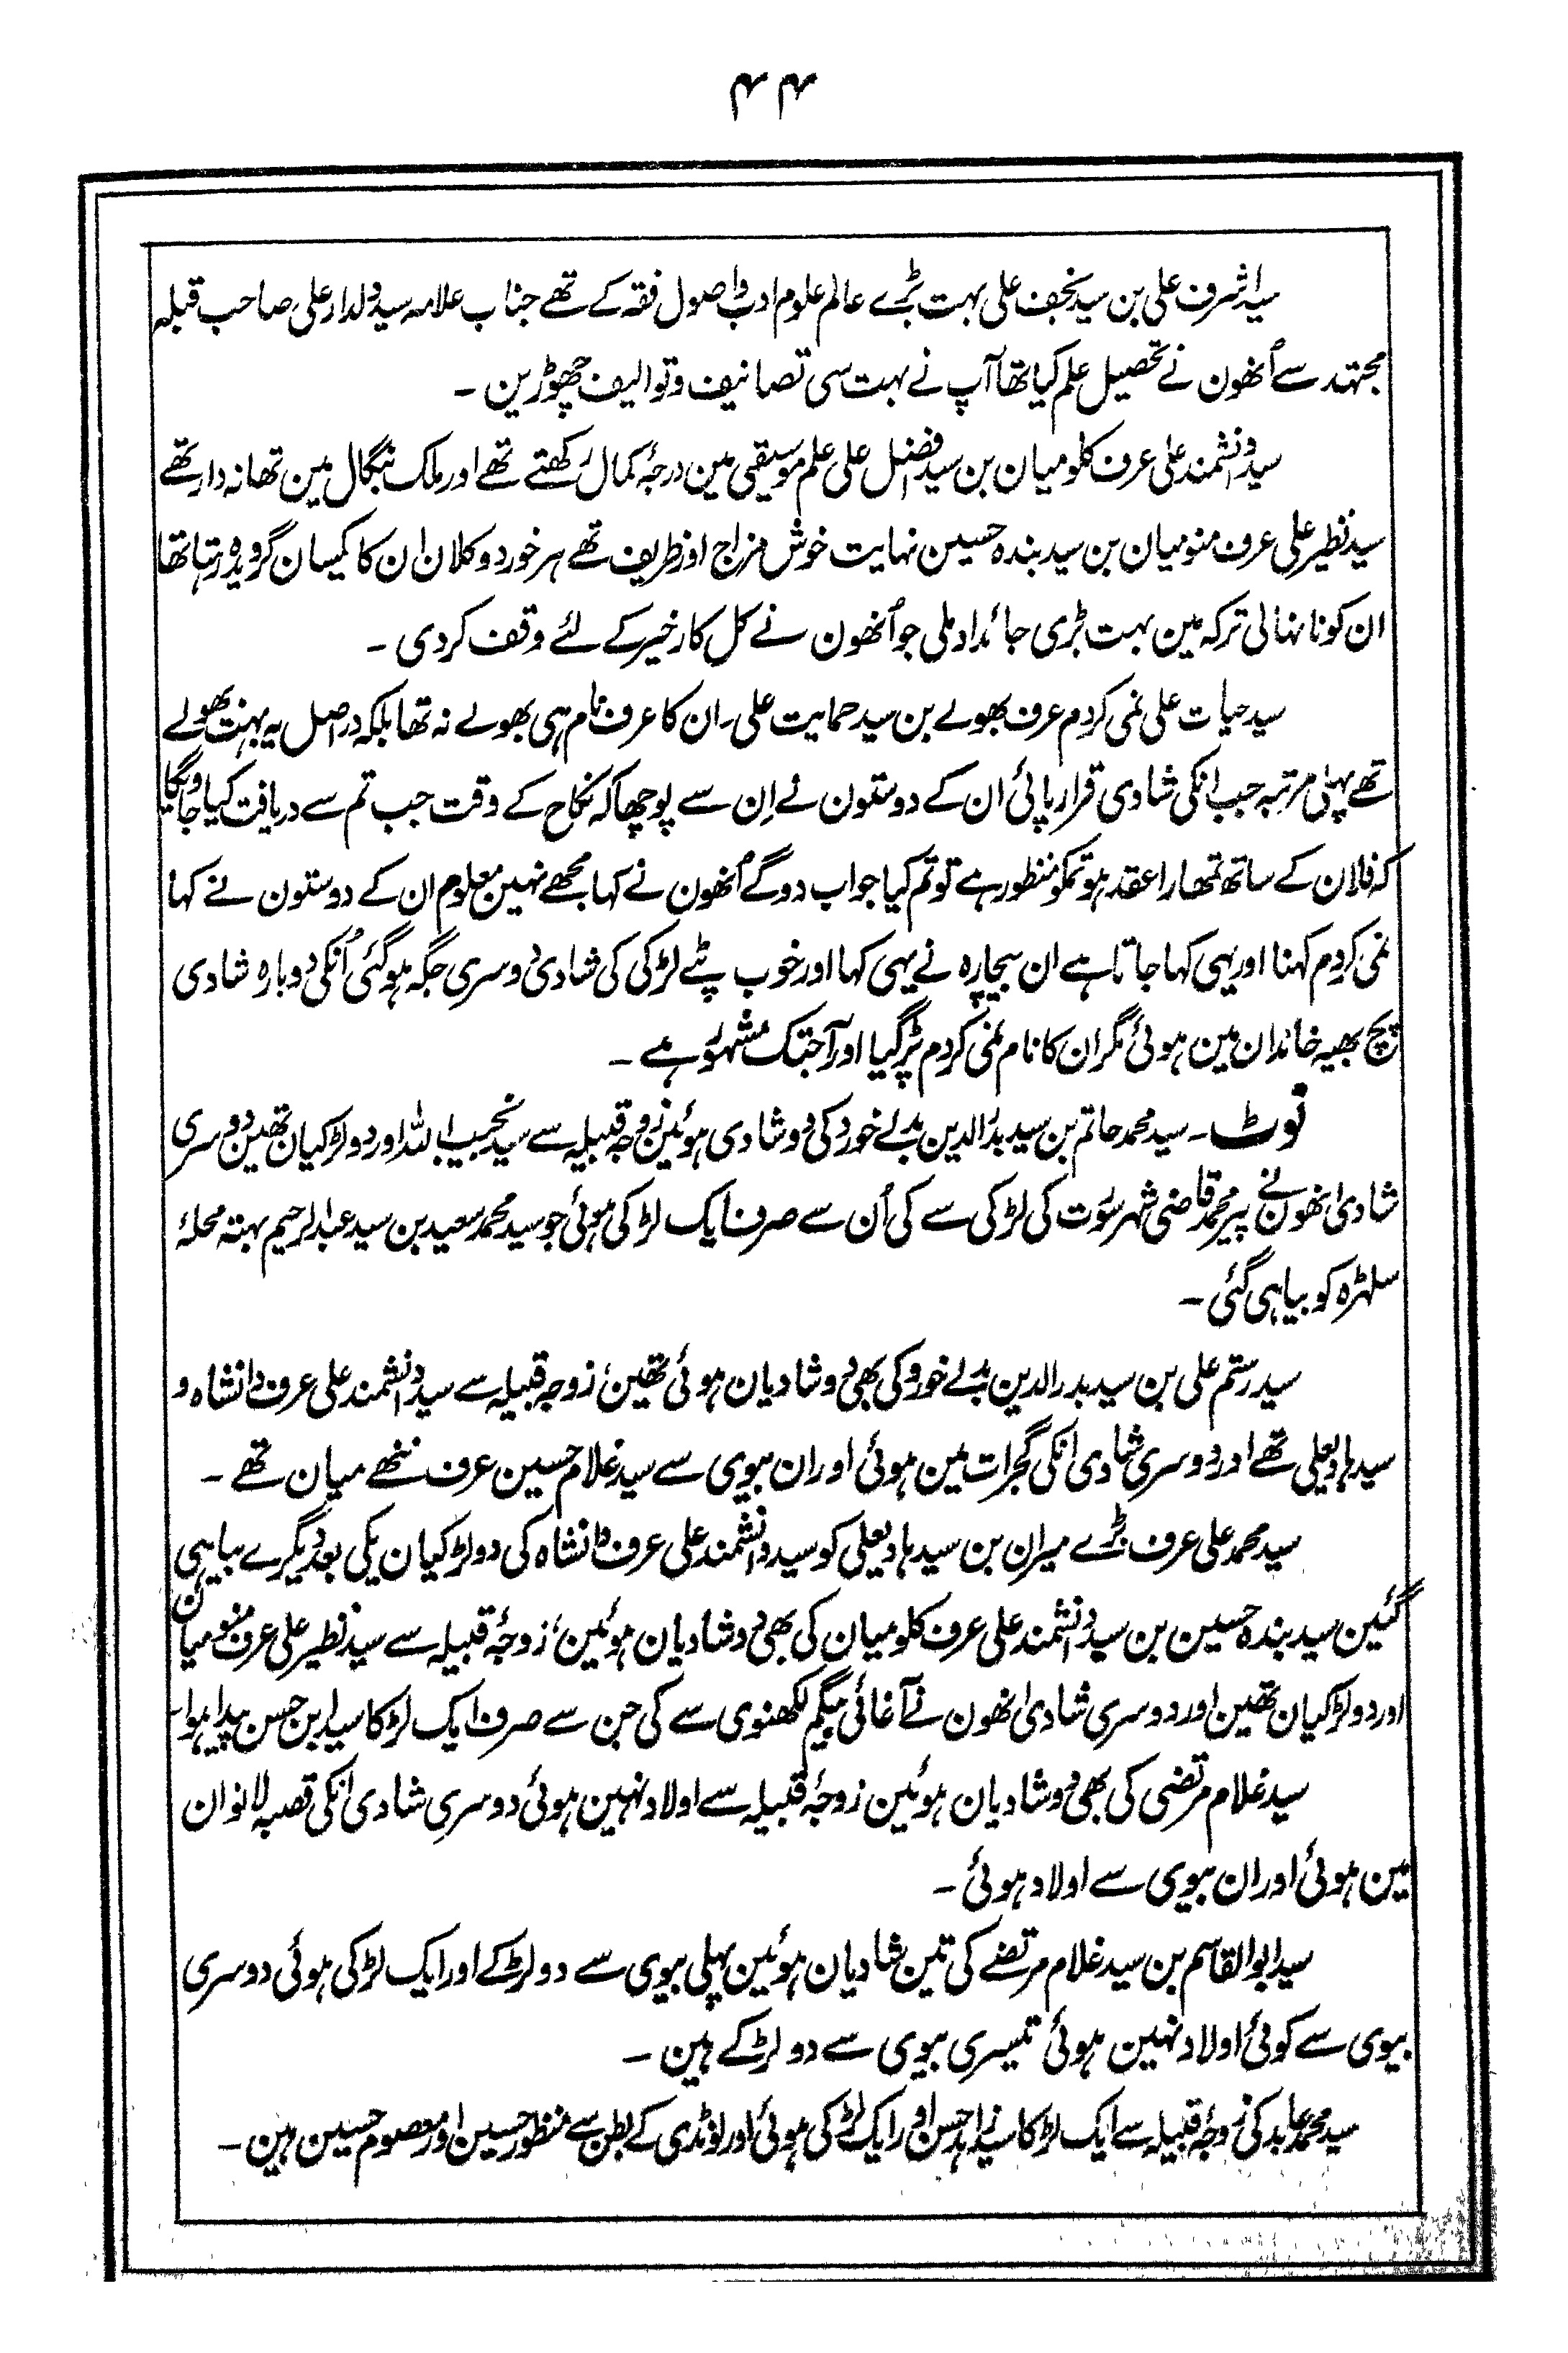 ۴۴
سید اشرف علی بن سید نجف علی بہت بڑے عالم علوم ادب و اصول فقہ کے تھے جناب علامہ سید دلدار علی صاحب قبلہ
مجتہد سے اُنھون نے تحصیل علم کیا تھا آپ نے بہت سی تصانیف و توالیف چھوڑین ۔
سید دانشمند علی عرف کلو میان بن سید فضل علی علم موسیقی مین درجۂ کمال رکھتے تھے اور ملک بنگال مین تھانہ دار تھے
سید نظیر علی عرف منو میان بن سید بندہ حسین نہایت خوش مزاج اور ظریف تھے ہر خورد و کلان ان کا یکسان گرویدہ رہتا تھا
ان کو نانہالی ترکہ مین بہت بڑی جائداد ملی جو اُنھون نے کل کار خیر کے لئے وقف کردی ۔
سید حیات علی نمی کردم عرف بھولے بن سید حمایت علی۔ ان کا عرف نام ہی بھولے نہ تھا بلکہ دراصل یہ بہت بھولے
تھے پہلی مرتبہ جب انکی شادی قرار پائی ان کے دوستون نے اِن سے پوچھا کہ نکاح کے وقت جب تم سے دریافت کیا جاویگا
کہ فلان کے ساتھ تمھارا عقد ہو تمکو منظور ہے تو تم کیا جواب دوگے اُنھون نے کہا مجھے نہین معلوم ان کے دوستون نے کہا
نمی کردم کہنا اور یہی کہا جاتا ہے ان بیچارہ نے یہی کہا اور خوب پٹے لڑکی کی شادی دوسری جگہ ہوگئی اُنکی دوبارہ شادی
چچ بھیہ خاندان مین ہوئی مگر ان کا نام نمی کردم پڑگیا اور آجتک مشہور ہے ۔
نوٹ ۔ سید محمد حاتم بن سید بدرالدین بدلے خورد کی دو شادی ہوئین زوجہ قبیلہ سے سید نجیب اللہ اور دو لڑکیان تھین دوسری
شادی انھون نے پیر محمد قاضی شہر سورت کی لڑکی سے کی اُن سے صرف ایک لڑکی ہوئی جو سید محمد سعید بن سید عبدالرحیم بہتہ محلۂ
سلہڑہ کو بیاہی گئی ۔
سید رستم علی بن سید بدرالدین بدلے خورد کی بھی دو شادیان ہوئی تھین، زوجہ قبیلہ سے سید دانشمند علی عرف دانشاہ و
سید ہادیعلی تھے اور دوسری شادی انکی گجرات مین ہوئی اور ان بیوی سے سید غلام حسین عرف ننھے میان تھے ۔
سید محمد علی عرف بڑے میران بن سید ہادیعلی کو سید دانشمند علی عرف دانشاہ کی دو لڑکیان یکی بعد دیگرے بیاہی
گئین سید بندہ حسین بن سید دانشمند علی عرف کلو میان کی بھی دو شادیان ہوئین، زوجۂ قبیلہ سے سید نظیر علی عرف منو میان
اور دو لڑکیان تھین اور دوسری شادی انھون نے آغائی بیگم لکھنوی سے کی جن سے صرف ایک لڑکا سید ابن حسن پیدا ہوا۔
سید غلام مرتضی کی بھی دو شادیان ہوئین زوجۂ قبیلہ سے اولاد نہین ہوئی دوسری شادی انکی قصبہ لانوان
مین ہوئی اور ان بیوی سے اولاد ہوئی ۔
سید ابوالقاسم بن سید غلام مرتضے کی تین شادیان ہوئین پہلی بیوی سے دو لڑکے اور ایک لڑکی ہوئی دوسری
بیوی سے کوئی اولاد نہین ہوئی تیسری بیوی سے دو لڑکے ہین ۔
سید محمد عابد کی زوجۂ قبیلہ سے ایک لڑکا سید زاہد حسن اور ایک لڑکی ہوئی اور لونڈی کے بطن سے منظور حسین اور معصوم حسین ہین ۔